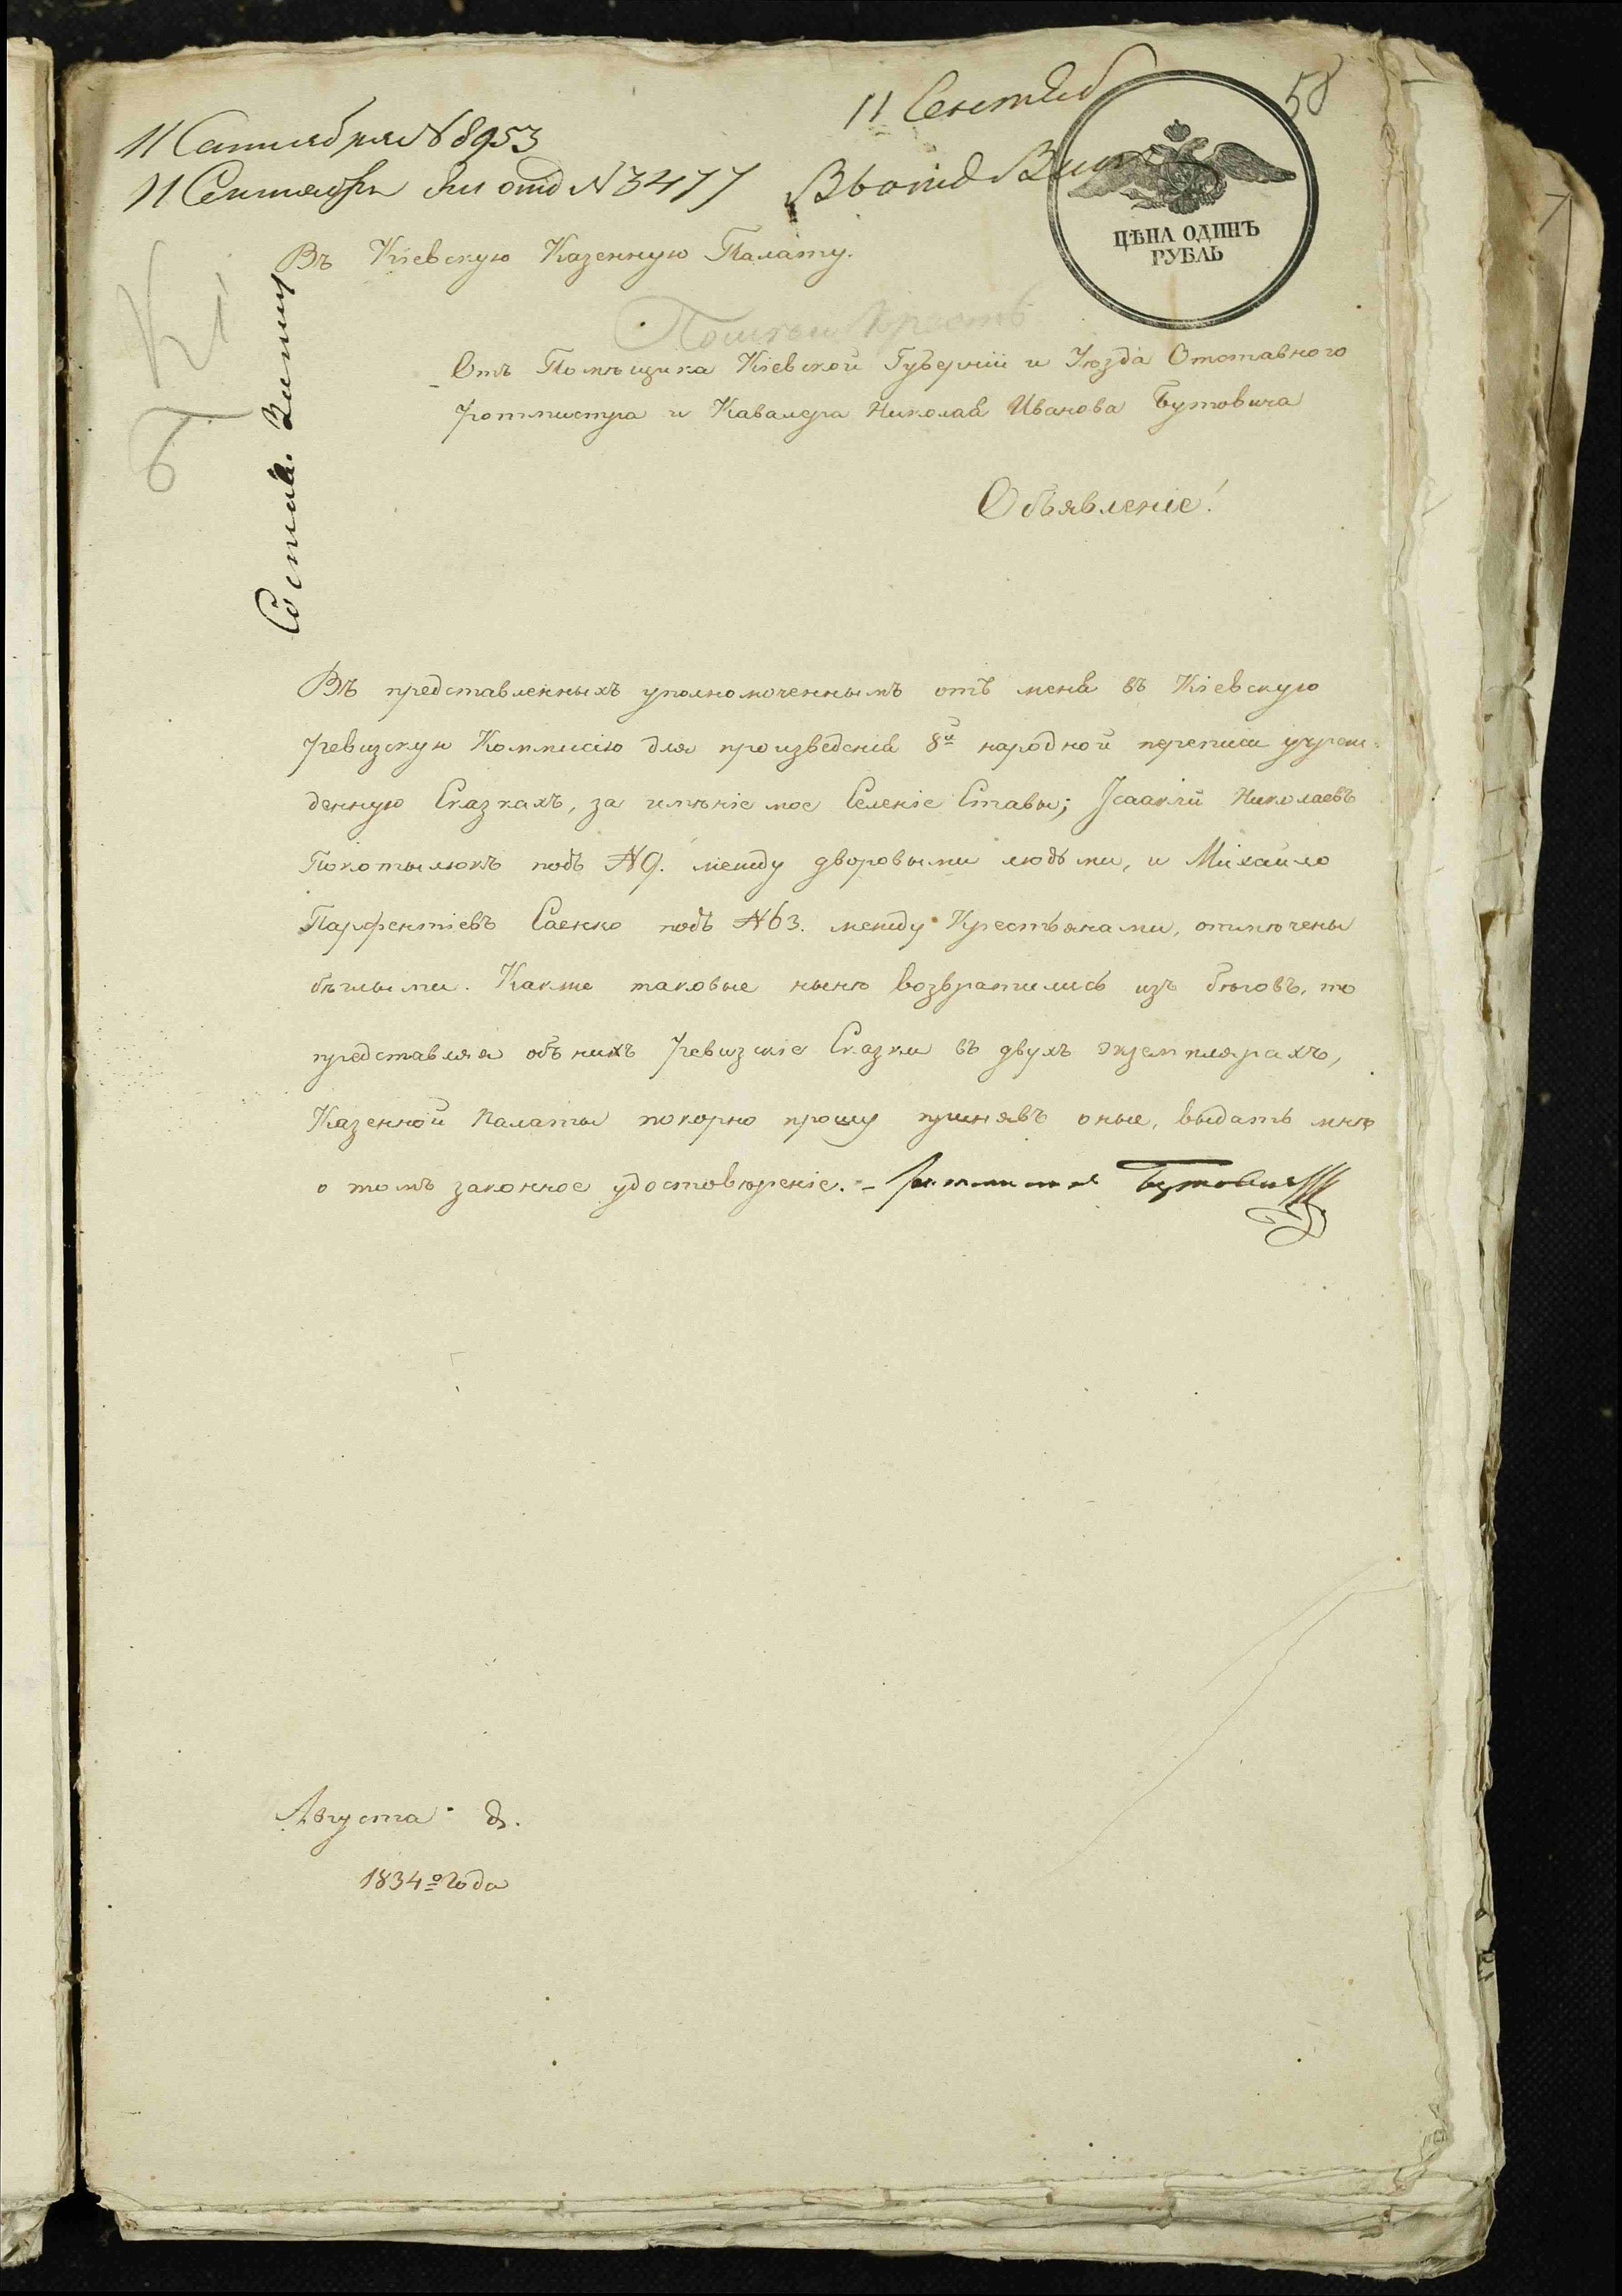 11 Сентяб
58
11 Сентября № 8953
11 Сентября отд № 3477
ЦѢНА ОДИНЪ
РУБЛЬ
Въ Кіевскую Казенную Палату.
Отъ Помѣщика Кіевской Губерніи и Уѣзда Отставного
Ротмистра и Кавалера Николая Иванова Бутовича
Объявленіе!
Въ представленныхъ уполномоченнымъ отъ меня въ Кіевскую
Ревизскую Коммисію для произведенія 8й народной переписи учреж-
денную Сказкахъ, за имѣніе мое Селеніе Ставы; Ісаакій Николаевъ
Покотылюкъ подъ №9. между дворовыми людьми, и Михайло
Парфентіевъ Саенко подъ №63. между Крестьянами, отмѣчены
бѣглыми. Какже таковые нынѣ возвратились изъ бѣговъ, то
представляя объ нихъ Ревизскіе Сказки въ двухъ экземплярахъ,
Казенной Палаты покорно прошу принявъ оные, выдать мнѣ
о томъ законное удостовѣреніе. - Ротмистръ Бутовичъ
Августа д.
1834го Года